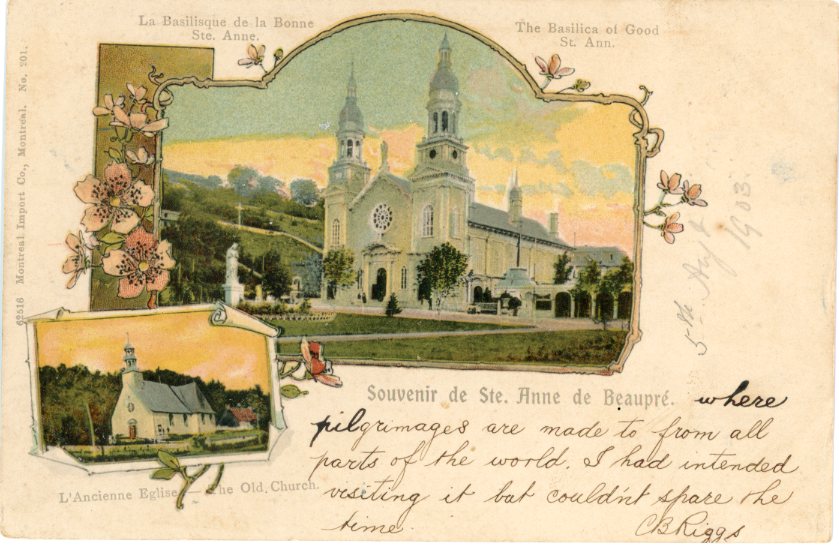 La Basilisque de la Bonne
Ste. Anne.
The Basilica of Good
St. Ann.
62516 Montreal Import Co., Montréal. No. 201.
5th Ag't
1903.
Souvenir de Ste. Anne de Beaupré. where
pilgrimages are made to from all
parts of the world. I had intended
visiting it but couldn't spare the
time. CBRiggs
L'Ancienne Eglise — The Old Church.